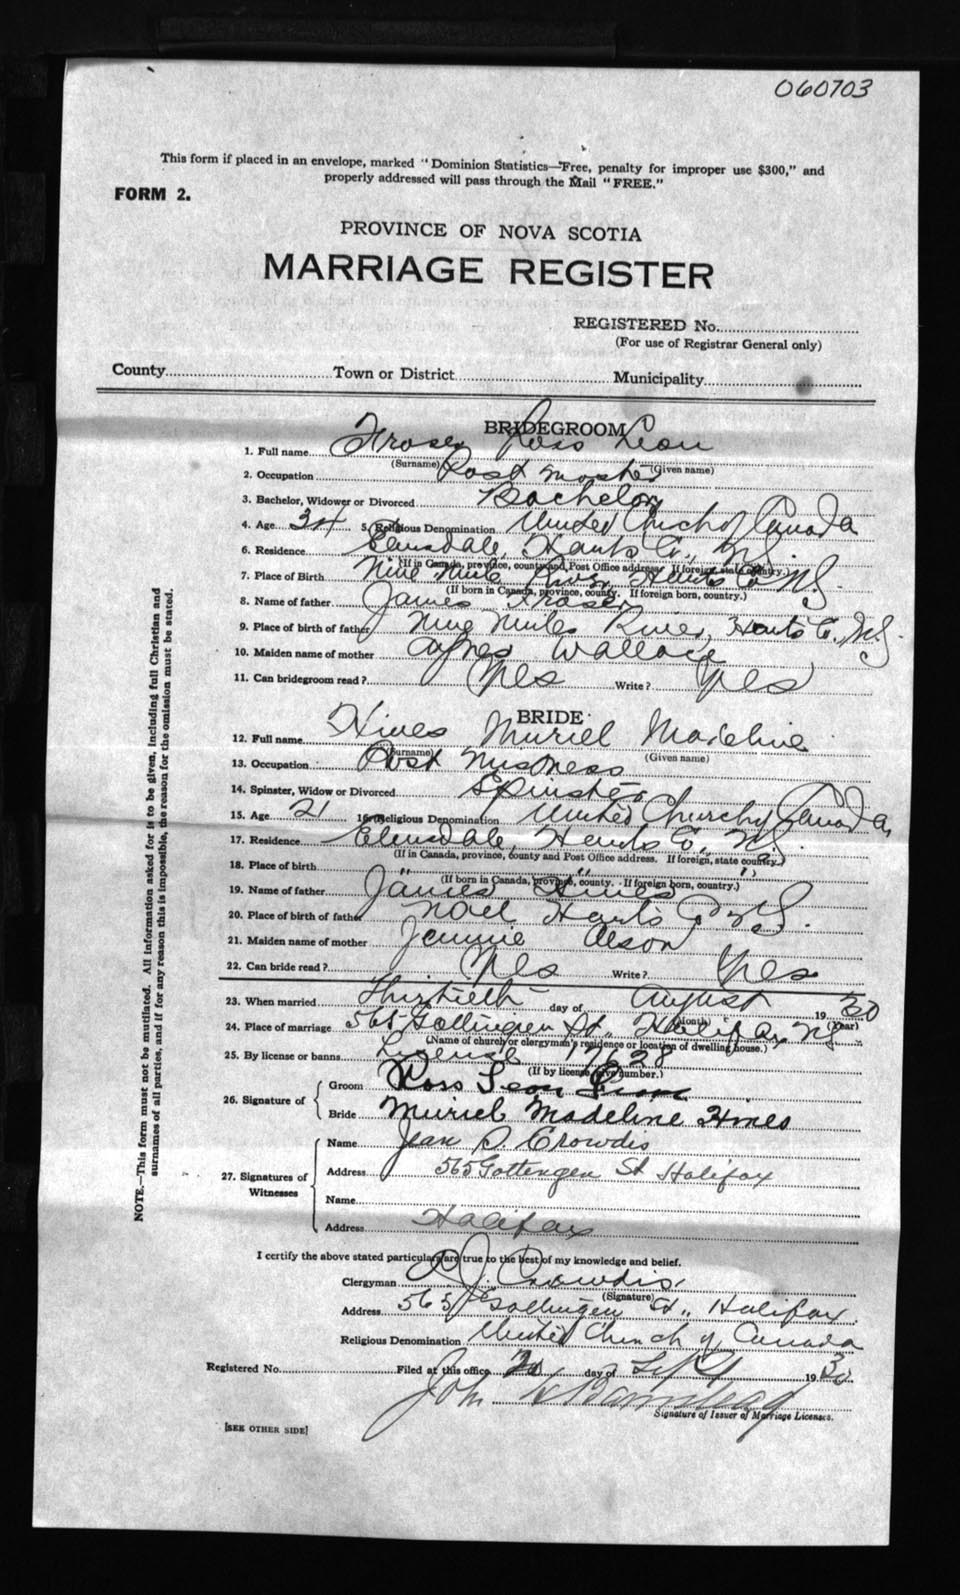 060703
This form if placed in an envelope, marked "Dominion Statistics—Free, penalty for improper use $300," and
properly addressed will pass through the Mail "FREE."
FORM 2.
PROVINCE OF NOVA SCOTIA
MARRIAGE REGISTER
REGISTERED No.
(For use of Registrar General only)
County Town or District Municipality
BRIDEGROOM
1. Full name Fraser Ross Leon
(Surname) (Given name)
2. Occupation Post Master
3. Bachelor, Widower or Divorced Bachelor
4. Age 34 5. Religious Denomination United Church of Canada
6. Residence Elmsdale, Hants Co., N.S.
(If in Canada, province, county and Post Office address. If foreign, state country.)
7. Place of Birth Nine Mile River, Hants Co. N.S.
(If born in Canada, province, county. If foreign born, country.)
8. Name of father James Fraser
9. Place of birth of father Nine Miles River, Hants Co., N.S.
10. Maiden name of mother Agnes Wallace
11. Can bridegroom read? Yes Write? Yes
BRIDE
12. Full name Hines Muriel Madeline
(Surname) (Given name)
13. Occupation Post Mistress
14. Spinster, Widow or Divorced Spinster
15. Age 21 16. Religious Denomination United Church of Canada,
17. Residence Elmsdale, Hants Co., N.S.
(If in Canada, province, county and Post Office address. If foreign, state country.)
18. Place of birth " " "
(If born in Canada, province, county. If foreign born, country.)
19. Name of father James Hines
20. Place of birth of father Noel Hants Co. N.S.
21. Maiden name of mother Jennie
22. Can bride read? Yes Write? Yes
23. When married Thirtieth day of August 1930
(Month) (Year)
24. Place of marriage 565 Gottingen St., Halifax, N.S.
(Name of church or clergyman's residence or location of dwelling house.)
25. By license or banns License 17628
(If by license, give number.)
26. Signature of Groom Ross Leon Fraser
Bride Muriel Madeline Hines
27. Signatures of Witnesses Name Jean S. Crowdis
Address 565 Gottengen St Halifax
Name
Address Halifax
I certify the above stated particulars are true to the best of my knowledge and belief.
Clergyman C. J. Crowdis.
(Signature)
Address 565 Gottingen St., Halifax.
Religious Denomination United Church of Canada
Registered No. Filed at this office day of Sept 1930
John H Barnstead
Signature of Issuer of Marriage Licenses.
[SEE OTHER SIDE]
NOTE.—This form must not be mutilated. All information asked for is to be given, including full Christian and
surnames of all parties, and if for any reason this is impossible, the reason for the omission must be stated.